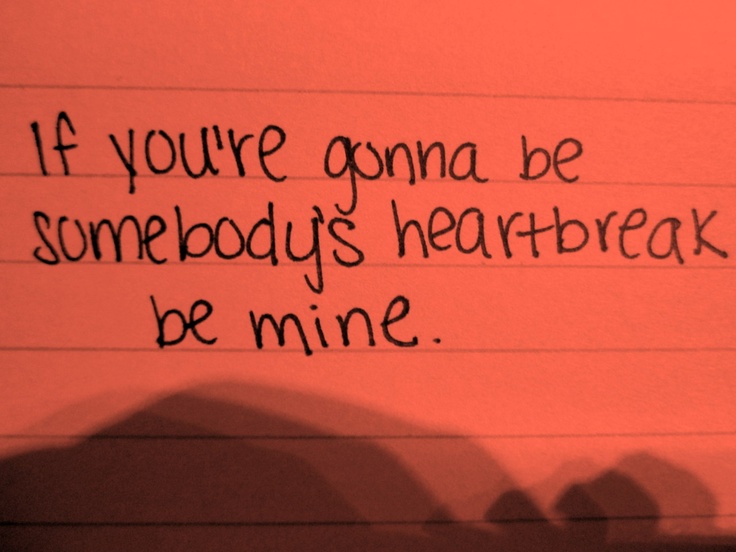 If you're gonna be
somebody's heartbreak
be mine.